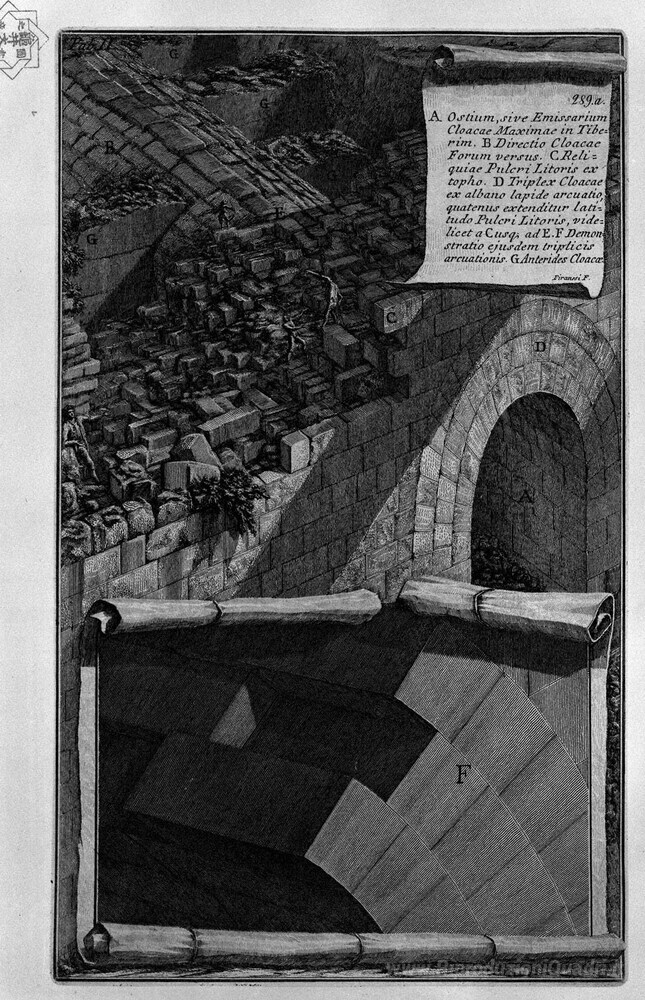 Tab. II.
G
289.a.
A Ostium, sive Emissarium
Cloacae Maximae in Tibe=
rim. B Directio Cloacae
Forum versus. C Reli=
quiae Pulcri Litoris ex
topho. D Triplex Cloacae
ex albano lapide arcuatio,
quatenus extenditur lati=
tudo Pulcri Litoris, vide=
licet a C usq. ad E. F. Demon
stratio ejusdem triplicis
arcuationis. G Anterides Cloacæ
Piranesi F.
G
B
E
G
C
D
A
F